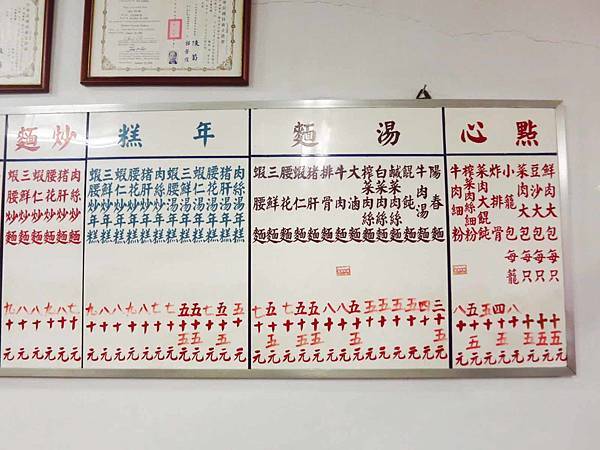 點心
鮮肉大包 每只 十五元
豆沙大包 每只 十五元
菜肉大包 每只 十元
小籠包 每籠 八十元
炸排骨 四十五元
菜肉大餛飩 五十元
榨菜肉絲細粉 五十五元
牛肉細粉 八十元
湯麵
陽春麵 三十五元
牛肉湯麵 四十元
餛飩麵 五十五元
鹹菜肉絲麵 五十元
白菜肉絲麵 五十元
榨菜肉絲麵 五十元
大滷麵 五十五元
牛肉麵 八十元
排骨麵 八十元
猪肝麵 五十五元
蝦仁麵 五十五元
腰花麵 七十元
三鮮麵 五十五元
蝦腰麵 七十五元
年糕
肉絲湯年糕 五十元
猪肝湯年糕 五十五元
腰花湯年糕 七十元
蝦仁湯年糕 五十五元
三鮮湯年糕 五十五元
蝦腰湯年糕 七十五元
肉絲炒年糕 七十元
猪肝炒年糕 八十元
腰花炒年糕 九十元
蝦仁炒年糕 八十元
三鮮炒年糕 八十元
蝦腰炒年糕 九十元
炒麵
肉絲炒麵 七十元
猪肝炒麵 八十元
腰花炒麵 九十元
蝦仁炒麵 八十元
三鮮炒麵 八十元
蝦腰炒麵 九十元